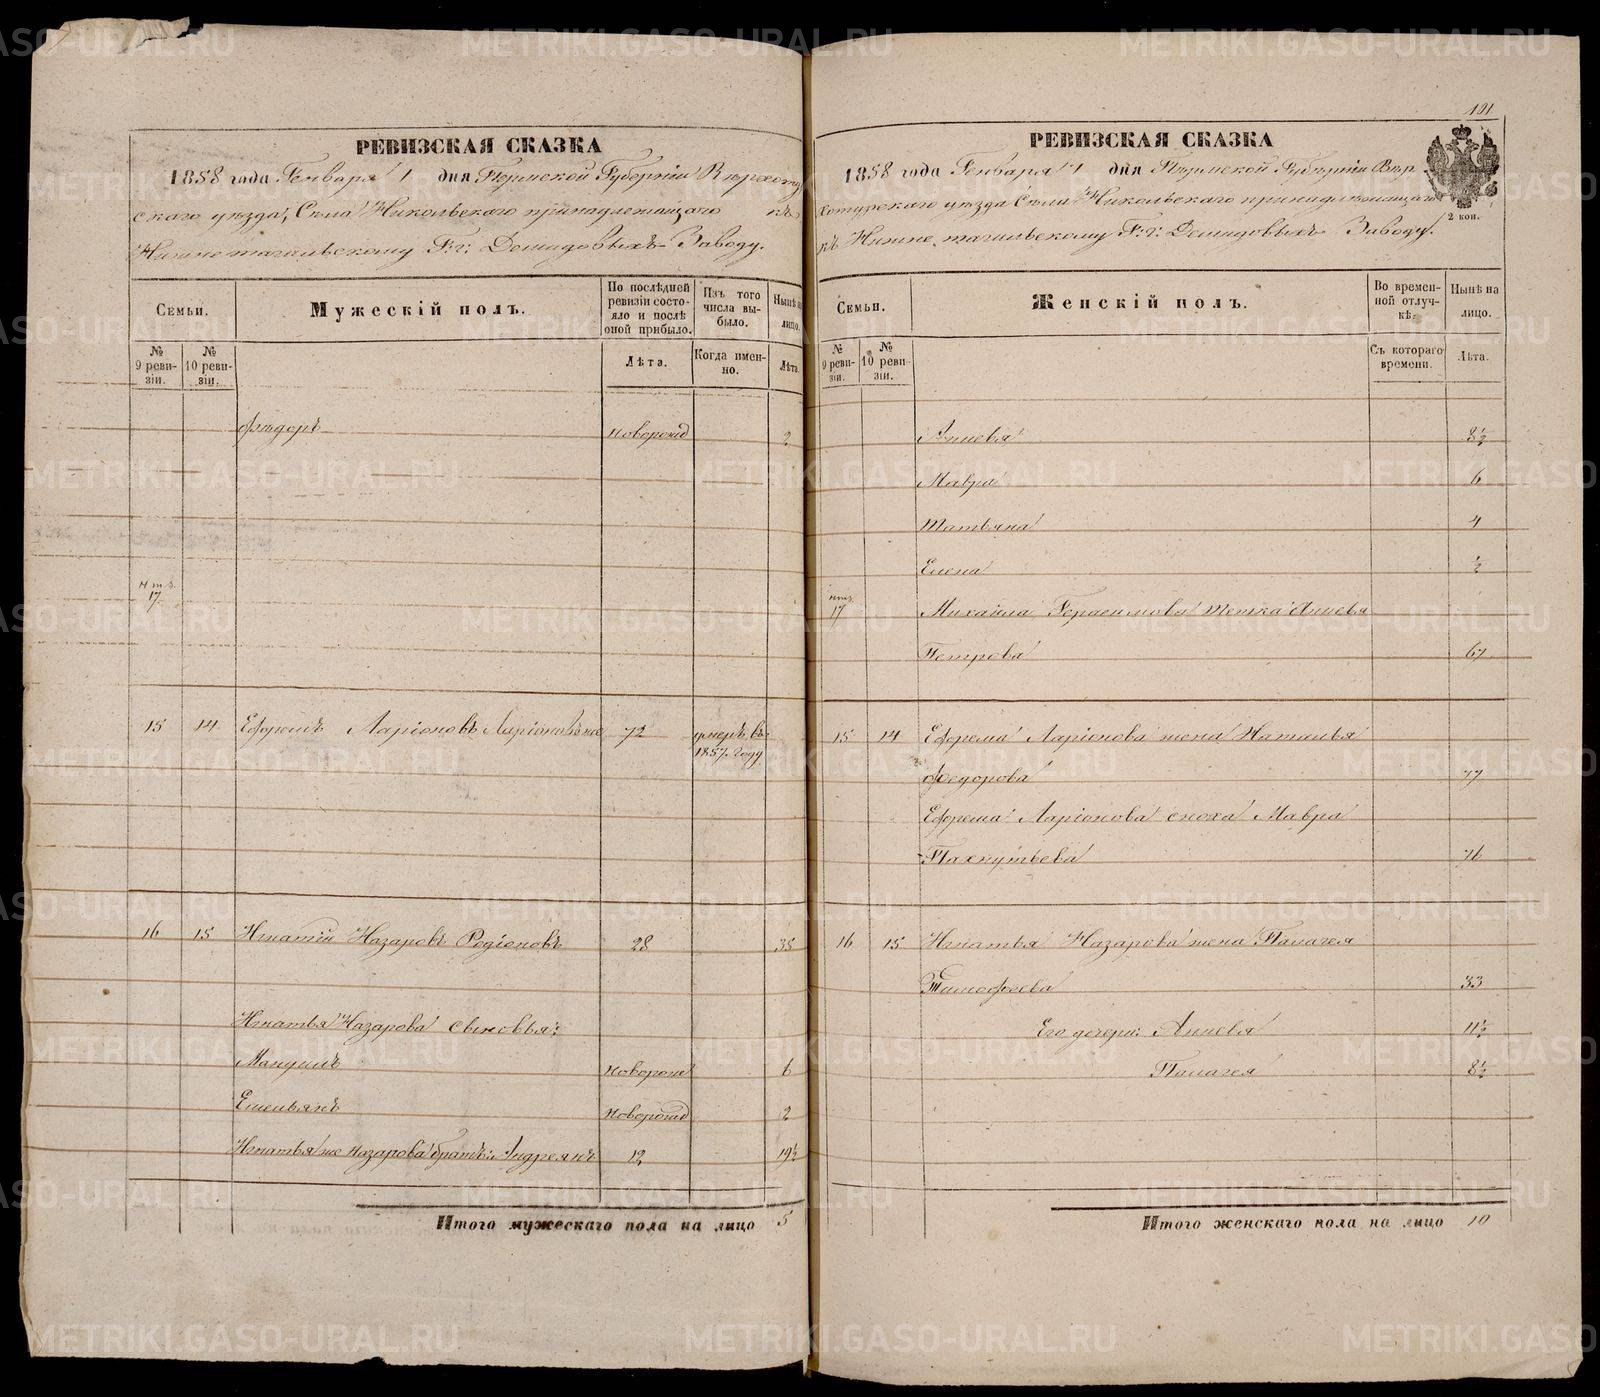 РЕВИЗСКАЯ СКАЗКА
1858 года Генваря 1 дня Пермской Губернiи Верхоту
скаго уезда, Села Никольскаго принадлежащаго къ
Нижнетагильскому Г: г: Демидовыхъ Заводу.
Семьи.
Мужескiй полъ.
По послѣдней ревизiи состояло и послѣ оной прибыло.
Изъ того числа выбыло.
Нынѣ на лицо.
№ 9 ревизiи.
№ 10 ревизiи.
Лѣта.
Когда именно.
Лѣта.
Федоръ новорожд 2
17
15 14 Ефремъ Ларiоновъ Ларiоновъ 72 умеръ въ
1857. году
16 15 Игнатiй Назаровъ Родiоновъ 28 35
Игнатья Назарова сыновья:
Мануилъ новорож 6
Емельянъ новорожд 2
Игнатья же Назарова братъ: Андреянъ 12 19½
Итого мужескаго пола на лицо 5
101
РЕВИЗСКАЯ СКАЗКА
1858 года Генваря 1 дня Пермской Губернiи Верхотурскаго уезда Села Никольскаго принадлежащаго
къ Нижне тагильскому Г: г: Демидовыхъ Заводу.
2 коп.
Семьи.
Женскiй полъ.
Во временной отлучкѣ.
Нынѣ на лицо.
№ 9 ревизiи.
№ 10 ревизiи.
Съ котораго времени.
Лѣта.
Анисья 8½
Мавра 6
Татьяна 4
Елена ½
17 Михаила Герасимова тетка Анисья
Петрова 67
15 14 Ефрема Ларiонова жена Наталья
Федорова 77
Ефрема Ларiонова сноха Мавра
Пахнутьева 76
16 15 Игнатья Назарова жена Палагея
Тимофеева 33
Его дочери: Анисья 11½
Палагея 8½
Итого женскаго пола на лицо 10
METRIKI.GASO-URAL.RU